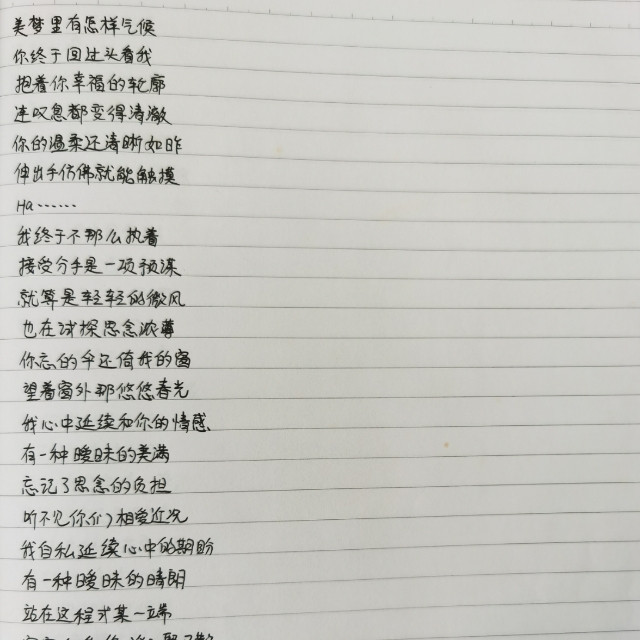 美梦里有怎样气候
你终于回过头看我
抱着你幸福的轮廓
连叹息都变得清澈
你的温柔还清晰如昨
伸出手仿佛就能触摸
Ha……
我终于不那么执着
接受分手是一项预谋
就算是轻轻的微风
也在试探思念浓薄
你忘的伞还倚我的窗
望着窗外那悠悠春光
我心中延续和你的情感
有一种暧昧的美满
忘记了思念的负担
听不见你们相爱近况
我自私延续心中的期盼
有一种暧昧的晴朗
站在这程式某一端